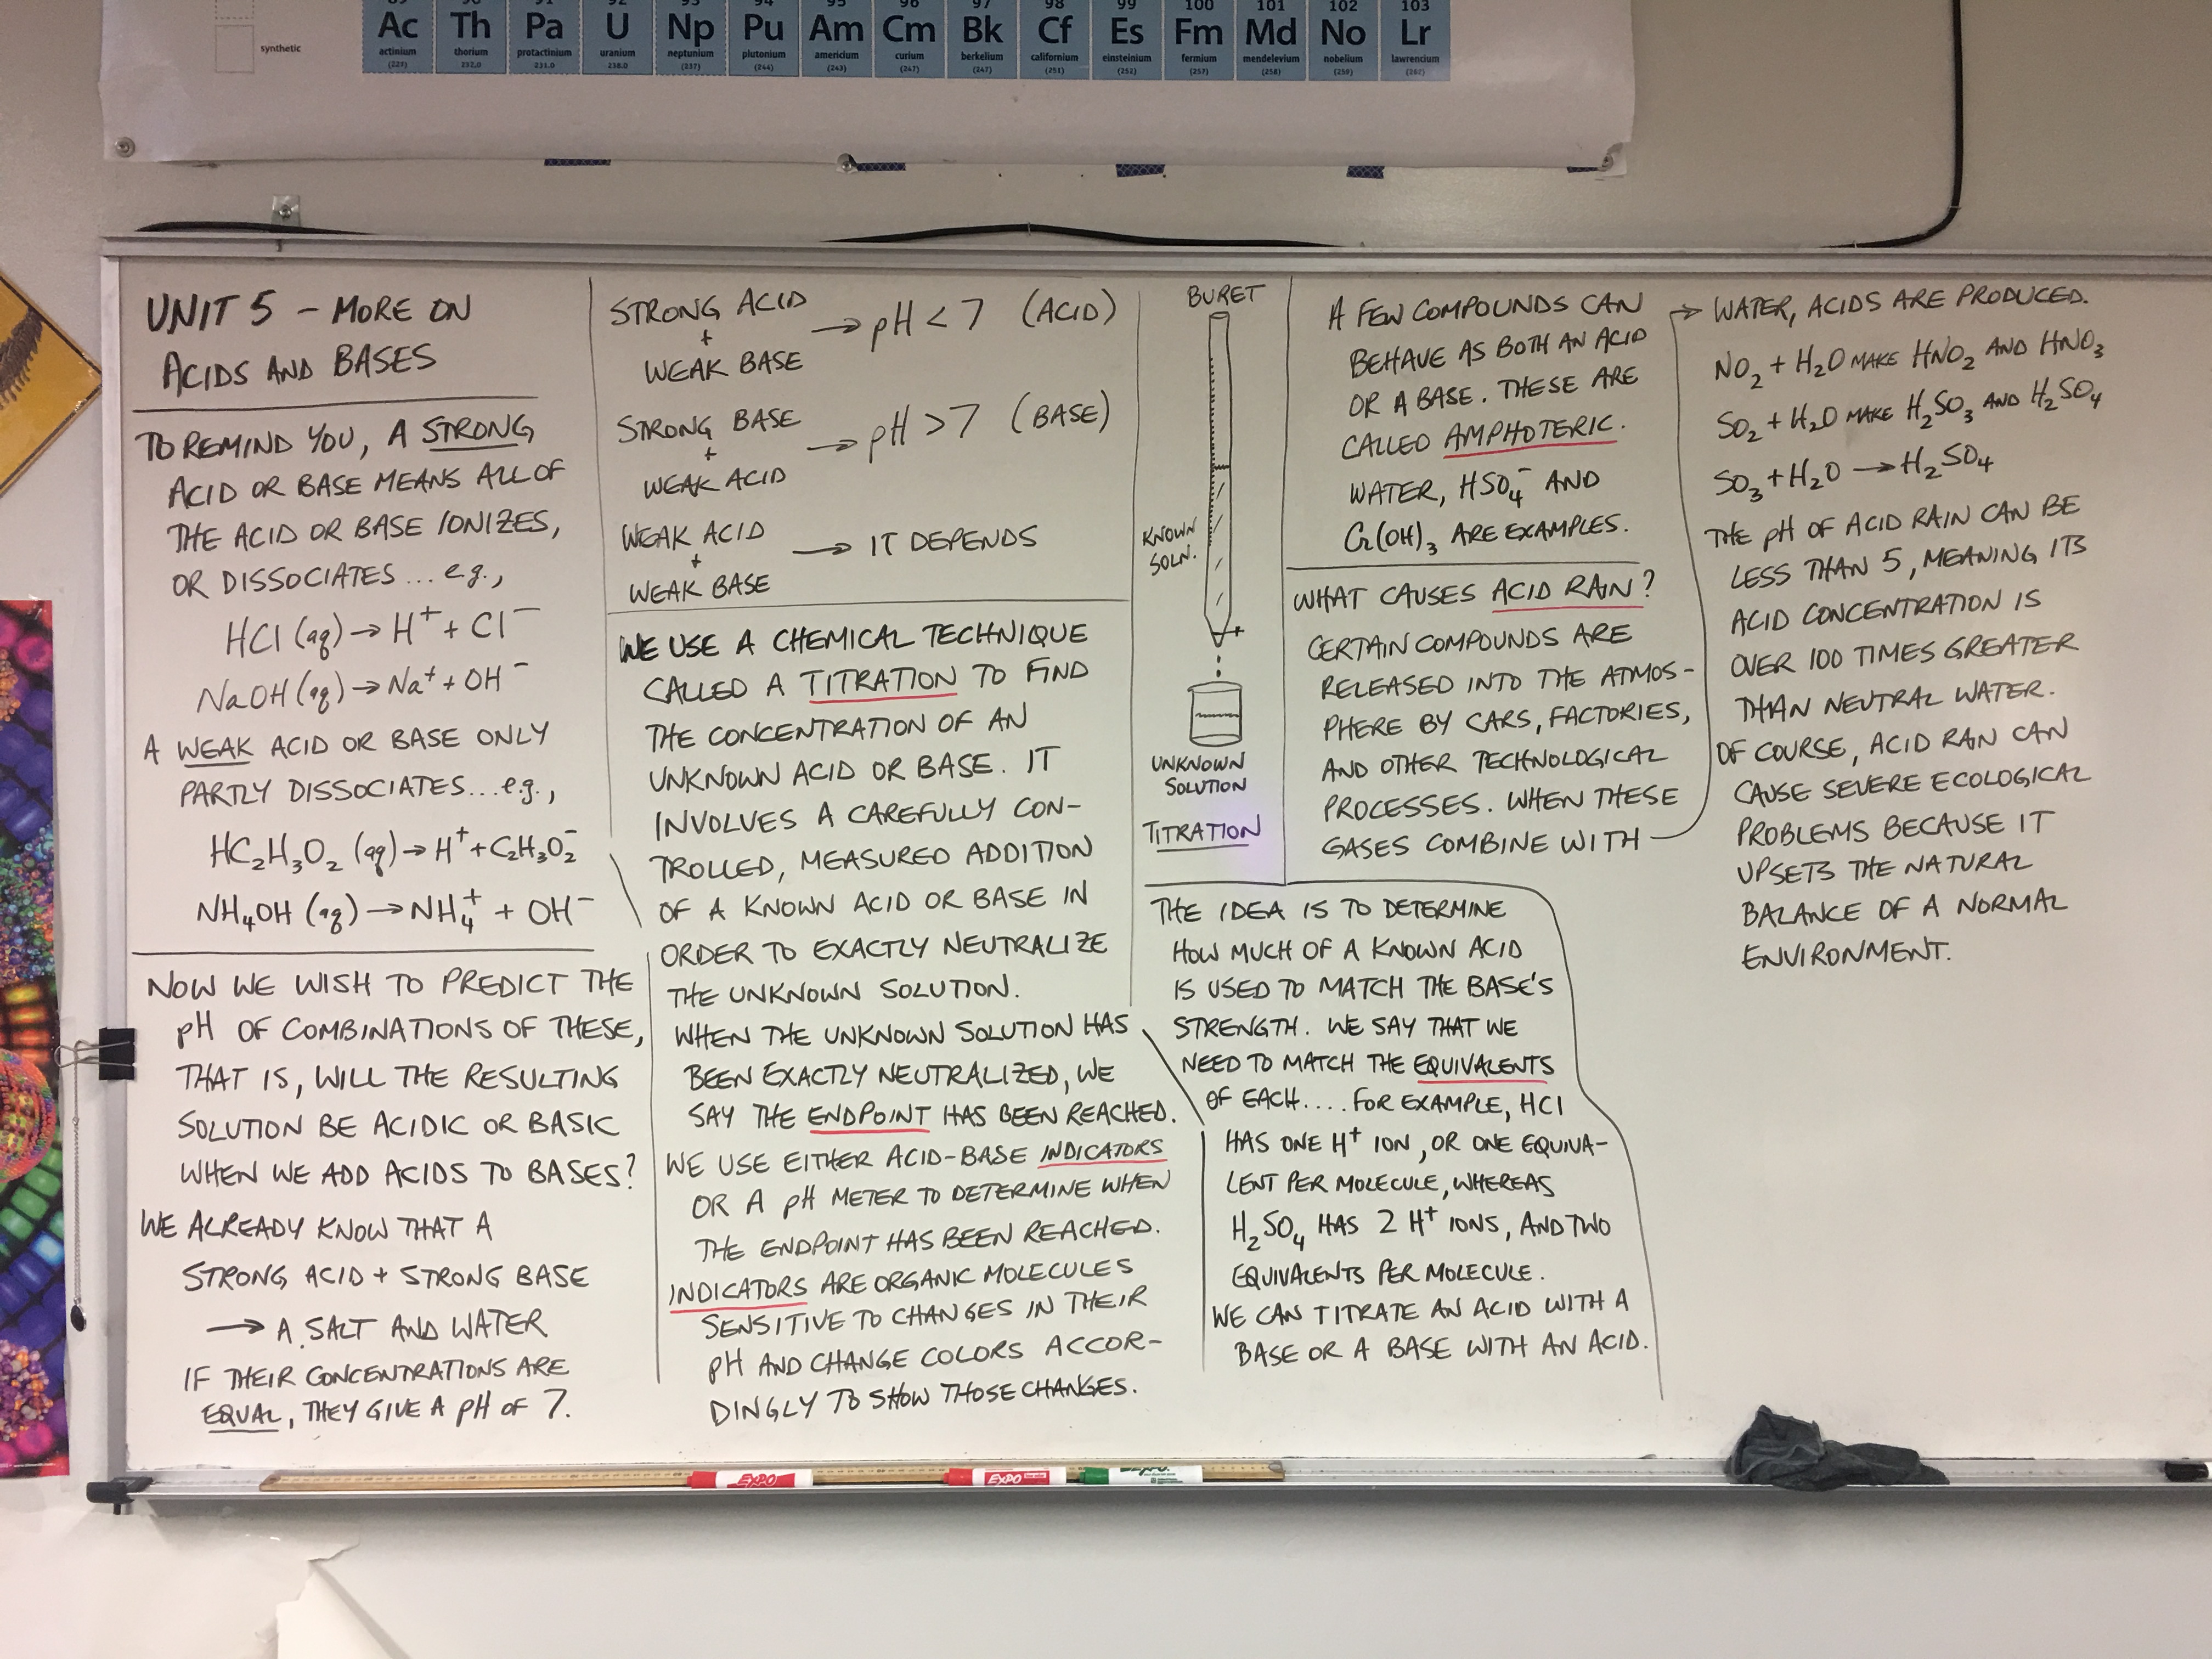 89 90 91 92 93 94 95 96 97 98 99 100 101 102 103
Ac Th Pa U Np Pu Am Cm Bk Cf Es Fm Md No Lr
synthetic
actinium thorium protactinium uranium neptunium plutonium americium curium berkelium californium einsteinium fermium mendelevium nobelium lawrencium
232.0 231.0 238.0 (237) (244) (243) (247) (247) (251) (252) (257) (258) (259) (262)
UNIT 5 - MORE ON
ACIDS AND BASES
TO REMIND YOU, A STRONG
ACID OR BASE MEANS ALL OF
THE ACID OR BASE IONIZES,
OR DISSOCIATES... e.g.,
HCl (aq) → H⁺ + Cl⁻
NaOH (aq) → Na⁺ + OH⁻
A WEAK ACID OR BASE ONLY
PARTLY DISSOCIATES... e.g.,
HC₂H₃O₂ (aq) → H⁺ + C₂H₃O₂⁻
NH₄OH (aq) → NH₄⁺ + OH⁻
NOW WE WISH TO PREDICT THE
pH OF COMBINATIONS OF THESE,
THAT IS, WILL THE RESULTING
SOLUTION BE ACIDIC OR BASIC
WHEN WE ADD ACIDS TO BASES?
WE ALREADY KNOW THAT A
STRONG ACID + STRONG BASE
→ A SALT AND WATER
IF THEIR CONCENTRATIONS ARE
EQUAL, THEY GIVE A pH OF 7.
STRONG ACID
+
WEAK BASE
→ pH < 7 (ACID)
STRONG BASE
+
WEAK ACID
→ pH > 7 (BASE)
WEAK ACID
+
WEAK BASE
→ IT DEPENDS
WE USE A CHEMICAL TECHNIQUE
CALLED A TITRATION TO FIND
THE CONCENTRATION OF AN
UNKNOWN ACID OR BASE. IT
INVOLVES A CAREFULLY CON-
TROLLED, MEASURED ADDITION
OF A KNOWN ACID OR BASE IN
ORDER TO EXACTLY NEUTRALIZE
THE UNKNOWN SOLUTION.
WHEN THE UNKNOWN SOLUTION HAS
BEEN EXACTLY NEUTRALIZED, WE
SAY THE ENDPOINT HAS BEEN REACHED.
WE USE EITHER ACID-BASE INDICATORS
OR A pH METER TO DETERMINE WHEN
THE ENDPOINT HAS BEEN REACHED.
INDICATORS ARE ORGANIC MOLECULES
SENSITIVE TO CHANGES IN THEIR
pH AND CHANGE COLORS ACCOR-
DINGLY TO SHOW THOSE CHANGES.
BURET
KNOWN
SOLN.
UNKNOWN
SOLUTION
TITRATION
THE IDEA IS TO DETERMINE
HOW MUCH OF A KNOWN ACID
IS USED TO MATCH THE BASE'S
STRENGTH. WE SAY THAT WE
NEED TO MATCH THE EQUIVALENTS
OF EACH.... FOR EXAMPLE, HCl
HAS ONE H⁺ ION, OR ONE EQUIVA-
LENT PER MOLECULE, WHEREAS
H₂SO₄ HAS 2 H⁺ IONS, AND TWO
EQUIVALENTS PER MOLECULE.
WE CAN TITRATE AN ACID WITH A
BASE OR A BASE WITH AN ACID.
A FEW COMPOUNDS CAN
BEHAVE AS BOTH AN ACID
OR A BASE. THESE ARE
CALLED AMPHOTERIC.
WATER, HSO₄⁻ AND
Cr(OH)₃ ARE EXAMPLES.
WHAT CAUSES ACID RAIN?
CERTAIN COMPOUNDS ARE
RELEASED INTO THE ATMOS-
PHERE BY CARS, FACTORIES,
AND OTHER TECHNOLOGICAL
PROCESSES. WHEN THESE
GASES COMBINE WITH
→ WATER, ACIDS ARE PRODUCED.
NO₂ + H₂O MAKE HNO₂ AND HNO₃
SO₂ + H₂O MAKE H₂SO₃ AND H₂SO₄
SO₃ + H₂O → H₂SO₄
THE pH OF ACID RAIN CAN BE
LESS THAN 5, MEANING ITS
ACID CONCENTRATION IS
OVER 100 TIMES GREATER
THAN NEUTRAL WATER.
OF COURSE, ACID RAIN CAN
CAUSE SEVERE ECOLOGICAL
PROBLEMS BECAUSE IT
UPSETS THE NATURAL
BALANCE OF A NORMAL
ENVIRONMENT.
EXPO
EXPO
EXPO